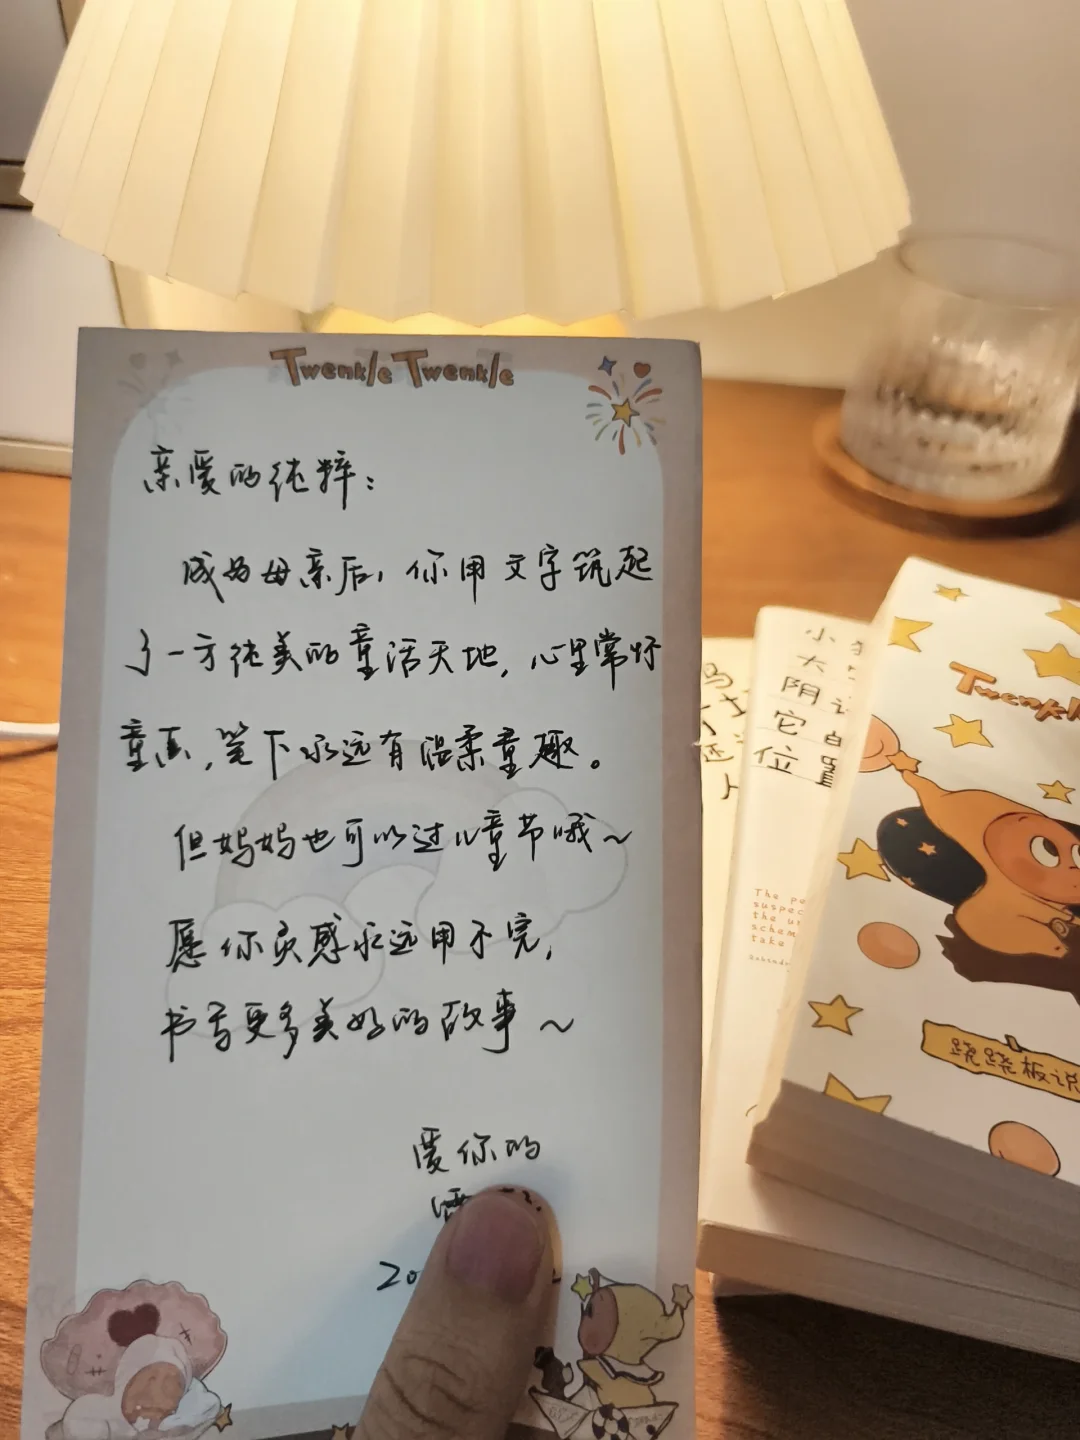 Twenkle Twenkle
亲爱的纯粹：
成为母亲后，你用文字筑起
了一方纯美的童话天地，心里常怀
童真，笔下永远有温柔童趣。
但妈妈也可以过儿童节哦～
愿你灵感永远用不完，
书写更多美好的故事～
爱你的
20
小
大
阴
它
位置
The
suspec
the
schem
take
跷跷板说